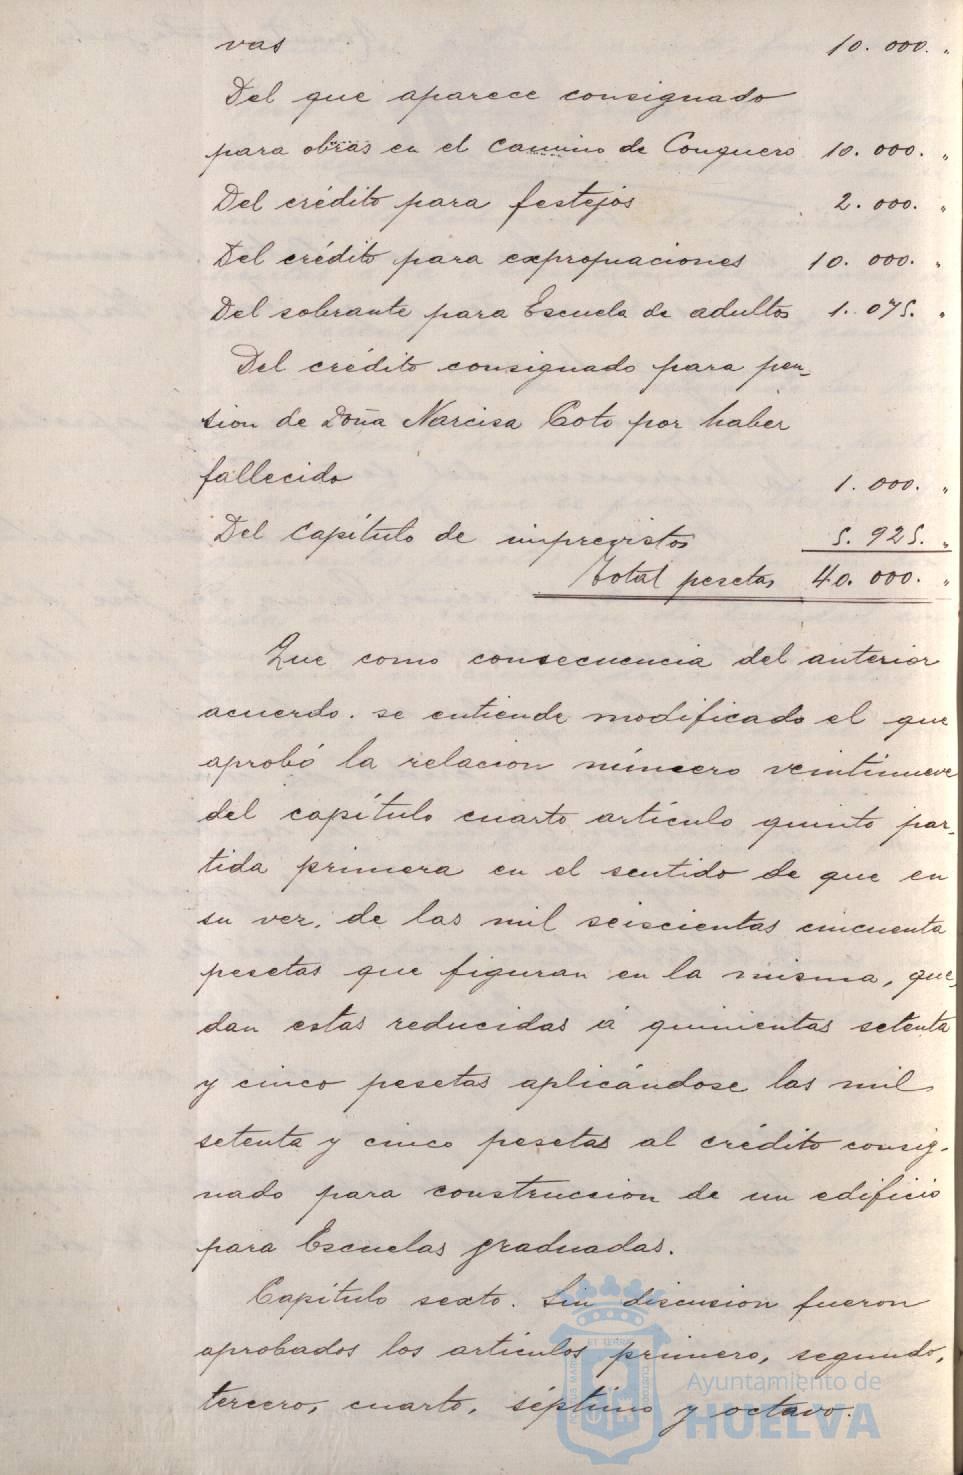 vas 10.000. „
Del que aparece consignado
para obras en el camino de Conquero 10.000. „
Del crédito para festejos 2.000. „
Del crédito para expropiaciones 10.000. „
Del sobrante para Escuela de adultos 1.075. „
Del crédito consignado para pen-
sion de Doña Narcisa Coto por haber
fallecido 1.000. „
Del Capítulo de imprevistos 5.925. „
Total pesetas 40.000. „
Que como consecuencia del anterior
acuerdo. se entiende modificado el que
aprobó la relacion número veintinueve
del capítulo cuarto artículo quinto par-
tida primera en el sentido de que en
su vez, de las mil seiscientas cincuenta
pesetas que figuran en la misma, que-
dan estas reducidas á quinientas setenta
y cinco pesetas aplicándose las mil
setenta y cinco pesetas al crédito consig-
nado para construccion de un edificio
para Escuelas graduadas.
Capítulo sexto. Sin discusion fueron
aprobados los artículos primero, segundo,
tercero, cuarto, séptimo y octavo.
Ayuntamiento de
HUELVA